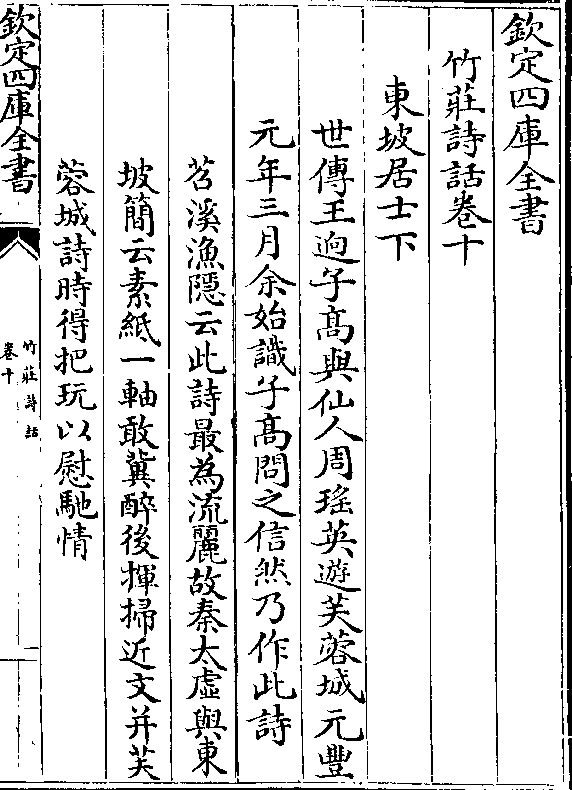 欽定四庫全書
竹莊詩話卷十
東坡居士下
世傳王逈子髙與仙人周瑤英遊芙蓉城元豐
元年三月余始識子髙問之信然乃作此詩
苕溪漁隱云此詩最為流麗故秦太虛與東
坡簡云素紙一軸敢冀醉後揮掃近文并芙
蓉城詩時得把玩以慰馳情
欽定四庫全書
竹莊詩話
卷十
一